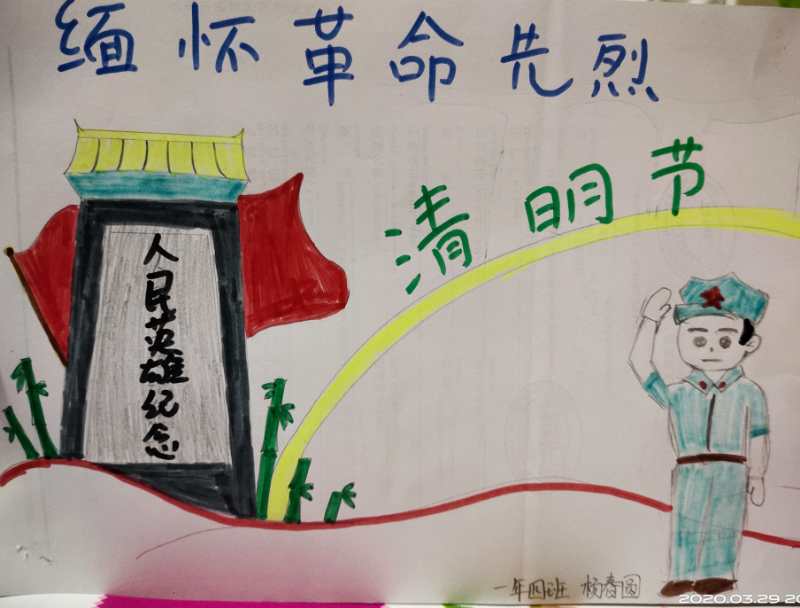 缅怀革命先烈
清明节
人民英雄纪念
一年四班 杨春圆
2020.03.29 20